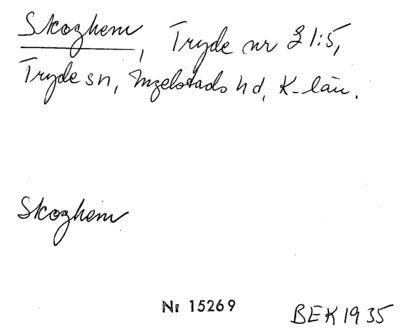 Skoghem, Tryde nr 21:5,
Tryde sn, Ingelstads hd, K-län.
Skoghem
Nr 15269
BEK1935